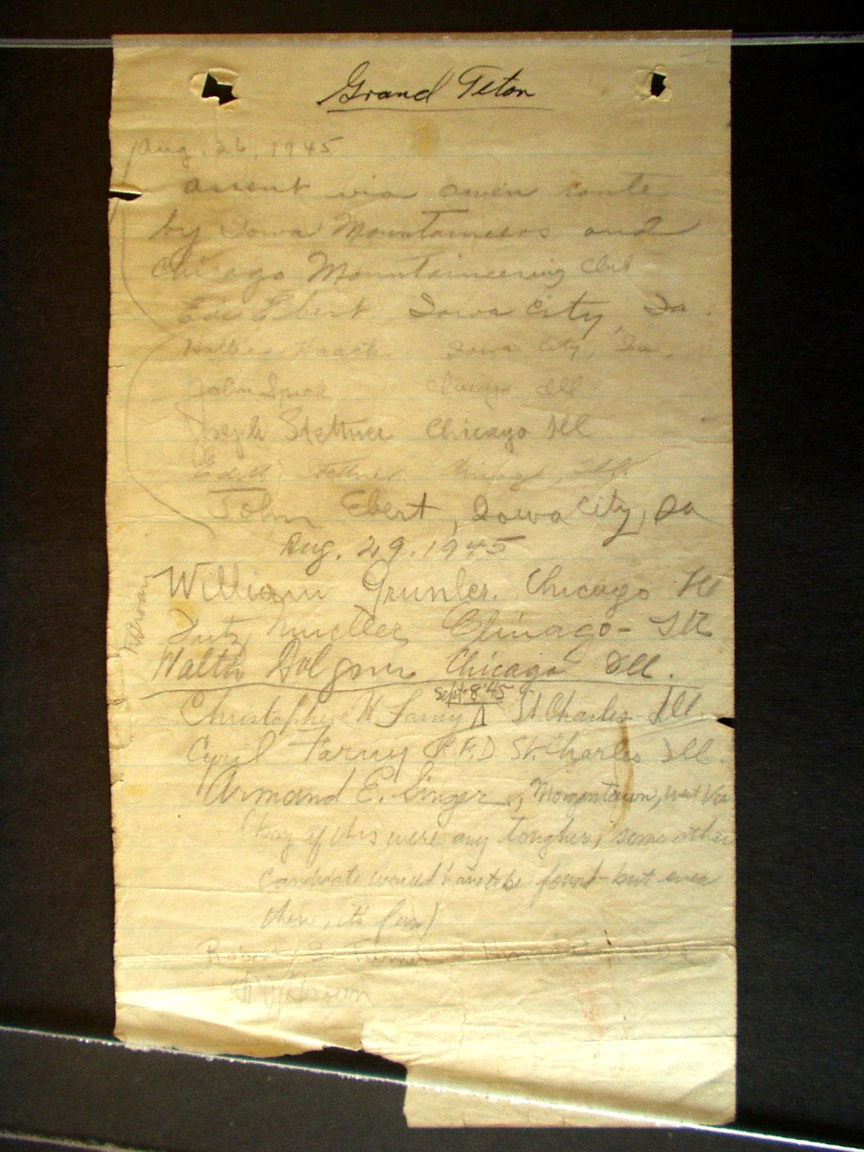 Grand Teton
Aug. 26, 1945
ascent via owen route
by Iowa Mountaineers and
Chicago Mountaineering Club
Ede Ebert Iowa City, Ia.
Iowa City, Ia.
John Chicago Ill
Joseph Stettner Chicago Ill
John Ebert, Iowa City, Ia
Aug. 29. 1945
William Grunler. Chicago Ill
Chicago - Ill
Walth Chicago Ill.
Sept 8 '45
Christopher St. Charles Ill.
Cyril Farny R.F.D St. Charles Ill.
Armand E. Singer, West Va
(boy if this were any tougher, some other
candidate would have to be found - but even
then, it's fun)
Turner
Brown